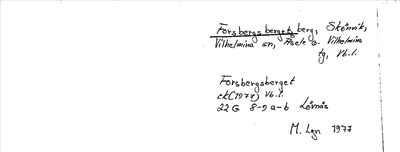 Forsbergsberget, berg, Skönvik,
Vilhelmina sn, Åsele o. Vilhelmina
tg, Vb.l.
Forsbergsberget
ek (1971) Vb.l.
22 G 8-9 a-b Lövnäs
M. Lgn 1977